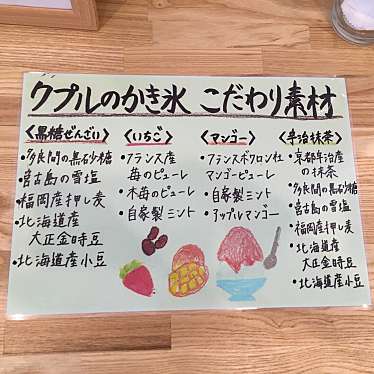 クプルのかき氷 こだわり素材
<黒糖ぜんざい>
・多良間の黒砂糖
・宮古島の雪塩
・福岡産押し麦
・北海道産
大正金時豆
・北海道産小豆
<いちご>
・フランス産
苺のピューレ
・木苺のピューレ
・自家製ミント
<マンゴー>
・フランスボワロン社
マンゴーピューレ
・自家製ミント
・アップルマンゴー
<宇治抹茶>
・京都宇治産
の抹茶
・多良間の黒砂糖
・宮古島の雪塩
・福岡産押し麦
・北海道産
大正金時豆
・北海道産小豆